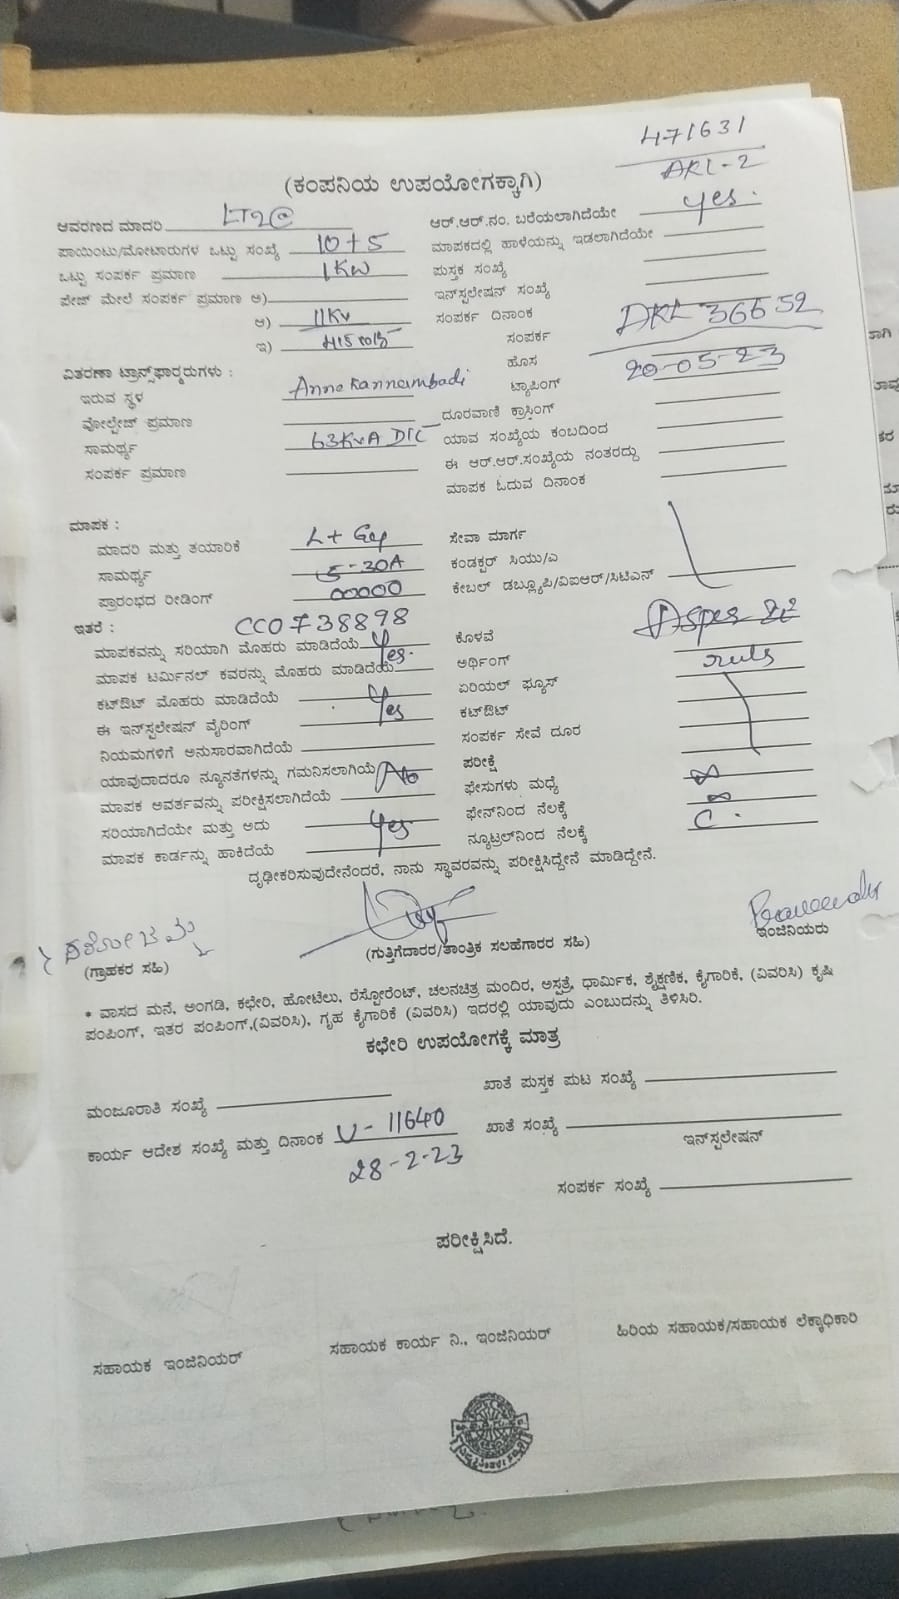 471631
(ಕಂಪನಿಯ ಉಪಯೋಗಕ್ಕಾಗಿ)
AKL-2
ಆವರಣದ ಮಾದರಿ LT2@
ಆರ್.ಆರ್.ನಂ. ಬರೆಯಲಾಗಿದೆಯೇ yes.
ಪಾಯಿಂಟು/ಮೋಟಾರುಗಳ ಒಟ್ಟು ಸಂಖ್ಯೆ 10+5
ಮಾಪಕದಲ್ಲಿ ಹಾಳೆಯನ್ನು ಇಡಲಾಗಿದೆಯೇ
ಒಟ್ಟು ಸಂಪರ್ಕ ಪ್ರಮಾಣ 1KW
ಪುಸ್ತಕ ಸಂಖ್ಯೆ
ಪೇಜ್ ಮೇಲೆ ಸಂಪರ್ಕ ಪ್ರಮಾಣ ಅ)
ಇನ್‌ಸ್ಟಲೇಷನ್ ಸಂಖ್ಯೆ
ಆ) 11KV
ಸಂಪರ್ಕ ದಿನಾಂಕ
ಇ)
ಸಂಪರ್ಕ DKL 36652
ಹೊಸ 20-05-23
ವಿತರಣಾ ಟ್ರಾನ್ಸ್‌ಫಾರ್‍ಮರುಗಳು :
ಇರುವ ಸ್ಥಳ Anne Kannambadi
ಟ್ಯಾಪಿಂಗ್
ವೋಲ್ಟೇಜ್ ಪ್ರಮಾಣ
ದೂರವಾಣಿ ಕ್ರಾಸಿಂಗ್
ಸಾಮರ್ಥ್ಯ 63KVA DTC
ಯಾವ ಸಂಖ್ಯೆಯ ಕಂಬದಿಂದ
ಸಂಪರ್ಕ ಪ್ರಮಾಣ
ಈ ಆರ್.ಆರ್.ಸಂಖ್ಯೆಯ ನಂತರದ್ದು
ಮಾಪಕ ಓದುವ ದಿನಾಂಕ
ಮಾಪಕ :
ಮಾದರಿ ಮತ್ತು ತಯಾರಿಕೆ L+
ಸೇವಾ ಮಾರ್ಗ
ಸಾಮರ್ಥ್ಯ 5-30A
ಕಂಡಕ್ಟರ್ ಸಿಯು/ಎ
ಪ್ರಾರಂಭದ ರೀಡಿಂಗ್ 00000
ಕೇಬಲ್ ಡಬ್ಲ್ಯೂಪಿ/ವಿಐಆರ್/ಸಿಟಿಎಸ್
ಇತರೆ : CC0738898
ಮಾಪಕವನ್ನು ಸರಿಯಾಗಿ ಮೊಹರು ಮಾಡಿದೆಯೆ
ಕೊಳವೆ As per
ಮಾಪಕ ಟರ್ಮಿನಲ್ ಕವರನ್ನು ಮೊಹರು ಮಾಡಿದೆಯೆ Yes.
ಅರ್ಥಿಂಗ್ ruls
ಕಟ್‌ಔಟ್ ಮೊಹರು ಮಾಡಿದೆಯೆ
ಏರಿಯಲ್ ಫ್ಯೂಸ್
ಈ ಇನ್‌ಸ್ಟಲೇಷನ್ ವೈರಿಂಗ್ Yes
ಕಟ್‌ಔಟ್
ನಿಯಮಗಳಿಗೆ ಅನುಸಾರವಾಗಿದೆಯೆ
ಸಂಪರ್ಕ ಸೇವೆ ದೂರ
ಯಾವುದಾದರೂ ನ್ಯೂನತೆಗಳನ್ನು ಗಮನಿಸಲಾಗಿಯೆ No
ಪರೀಕ್ಷೆ
ಮಾಪಕ ಅವರ್ತವನ್ನು ಪರೀಕ್ಷಿಸಲಾಗಿದೆಯೆ
ಫೇಸುಗಳು ಮಧ್ಯೆ ∞
ಸರಿಯಾಗಿದೆಯೇ ಮತ್ತು ಅದು Yes
ಫೇಸ್‌ನಿಂದ ನೆಲಕ್ಕೆ ∞
ಮಾಪಕ ಕಾರ್ಡನ್ನು ಹಾಕಿದೆಯೆ
ನ್ಯೂಟ್ರಲ್‌ನಿಂದ ನೆಲಕ್ಕೆ C.
ದೃಢೀಕರಿಸುವುದೇನೆಂದರೆ, ನಾನು ಸ್ಥಾವರವನ್ನು ಪರೀಕ್ಷಿಸಿದ್ದೇನೆ ಮಾಡಿದ್ದೇನೆ.
(ಗ್ರಾಹಕರ ಸಹಿ)
(ಗುತ್ತಿಗೆದಾರರ/ತಾಂತ್ರಿಕ ಸಲಹೆಗಾರರ ಸಹಿ)
ಇಂಜಿನಿಯರು
* ವಾಸದ ಮನೆ, ಅಂಗಡಿ, ಕಛೇರಿ, ಹೋಟೆಲು, ರೆಸ್ಟೋರೆಂಟ್, ಚಲನಚಿತ್ರ ಮಂದಿರ, ಆಸ್ಪತ್ರೆ, ಧಾರ್ಮಿಕ, ಶೈಕ್ಷಣಿಕ, ಕೈಗಾರಿಕೆ, (ವಿವರಿಸಿ) ಕೃಷಿ
ಪಂಪಿಂಗ್, ಇತರ ಪಂಪಿಂಗ್,(ವಿವರಿಸಿ), ಗೃಹ ಕೈಗಾರಿಕೆ (ವಿವರಿಸಿ) ಇದರಲ್ಲಿ ಯಾವುದು ಎಂಬುದನ್ನು ತಿಳಿಸಿರಿ.
ಕಛೇರಿ ಉಪಯೋಗಕ್ಕೆ ಮಾತ್ರ
ಮಂಜೂರಾತಿ ಸಂಖ್ಯೆ
ಖಾತೆ ಪುಸ್ತಕ ಪುಟ ಸಂಖ್ಯೆ
ಕಾರ್ಯ ಆದೇಶ ಸಂಖ್ಯೆ ಮತ್ತು ದಿನಾಂಕ U-11640
ಖಾತೆ ಸಂಖ್ಯೆ
28-2-23
ಇನ್‌ಸ್ಪಲೇಷನ್
ಸಂಪರ್ಕ ಸಂಖ್ಯೆ
ಪರೀಕ್ಷಿಸಿದೆ.
ಸಹಾಯಕ ಇಂಜಿನಿಯರ್
ಸಹಾಯಕ ಕಾರ್ಯ ನಿ., ಇಂಜಿನಿಯರ್
ಹಿರಿಯ ಸಹಾಯಕ/ಸಹಾಯಕ ಲೆಕ್ಕಾಧಿಕಾರಿ